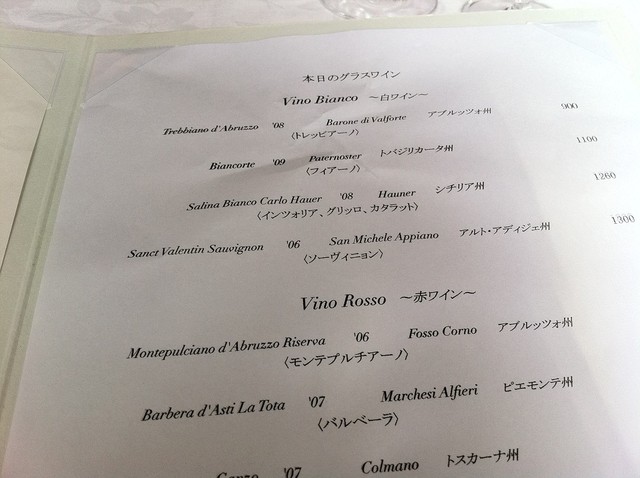 本日のグラスワイン
Vino Bianco ～白ワイン～
Trebbiano d'Abruzzo '08 Barone di Valforte アブルッツォ州 900
〈トレッビアーノ〉
Biancorte '09 Paternoster トバジリカータ州 1100
〈フィアーノ〉
Salina Bianco Carlo Hauer '08 Hauner シチリア州 1260
〈インツォリア、グリッロ、カタラット〉
Sanct Valentin Sauvignon '06 San Michele Appiano アルト・アディジェ州 1300
〈ソーヴィニョン〉
Vino Rosso ～赤ワイン～
Montepulciano d'Abruzzo Riserva '06 Fosso Corno アブルッツォ州
〈モンテプルチアーノ〉
Barbera d'Asti La Tota '07 Marchesi Alfieri ピエモンテ州
〈バルベーラ〉
'07 Colmano トスカーナ州